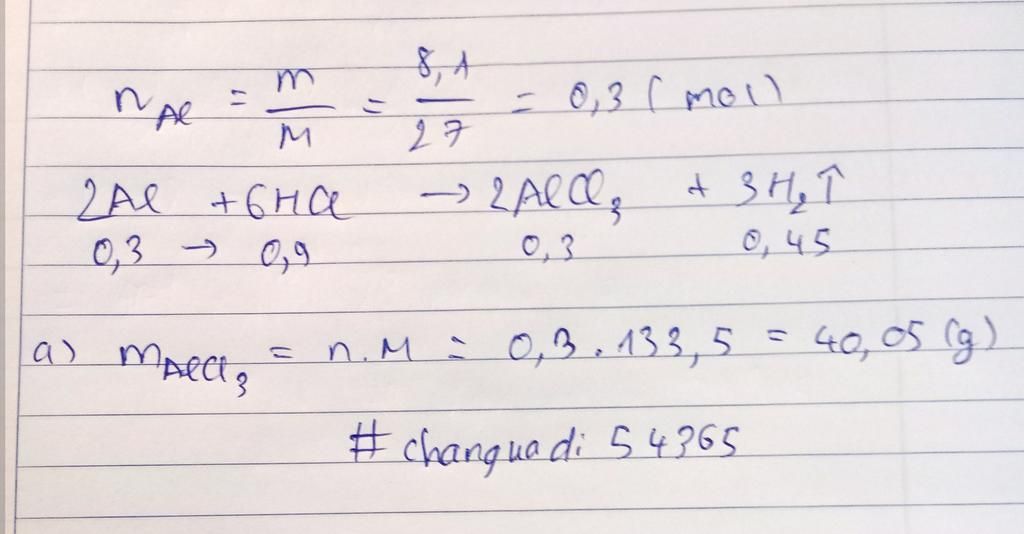 n_Al = m/M = 8,1/27 = 0,3 (mol)
2Al + 6HCl → 2AlCl₃ + 3H₂↑
0,3 → 0,9 0,3 0,45
a) m_AlCl₃ = n.M = 0,3.133,5 = 40,05 (g)
# changuadi 54365